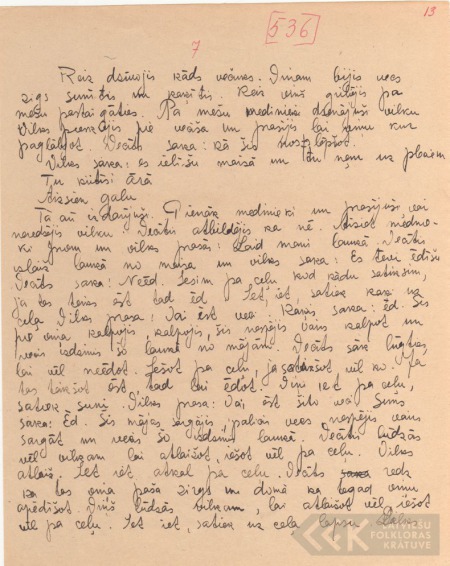 13
536
7
Reiz dzīvojis kāds vecītis. Viņam bijis vecs
zirgs sunītis un kaķītis. Reiz viņš gājis pa
mežu pastaigāties. Pa mežu mednieki dzenājuši vilku
Vilks pieskrējis pie veča un prasījis lai viņu kur
paglābjot. Vecītis saka: kā šis
Vilks saka: es ielīšu maisā un tu ņem uz pleciem
Tu būsi ārā
Aizsien galu
Tā arī izdarījuši. Pienāk mednieki un prasījuši vai
neredzējis vilku. Vecītis atbildējis ka nē. Aiziet medni-
ki prom un vilks prasa: Laid mani laukā. Vecītis
izlaiž laukā no maisa un vilks saka: Es tevi ēdīšu
Vecītis saka: Neēd. Iesim pa ceļu kad kādu satiksim,
ja tas teiks ēst tad ēd. Iet, iet, satiek kaķi uz
ceļa. Vilks prasa: Vai ēst veci Kaķis saka: ēd. Šis
pie viņa kalpojis kalpojis, šis nespējis vairs kalpot un
vecis izdzinis šo laukā no mājām. Vecītis sāk lūgties,
lai vēl neēdot. Iešot pa ceļu, ja satikšot, vēl ko. Ja
tas teikšot ēst tad lai ēdot. Viņi iet pa ceļu,
satiek suni. Vilks prasa: Vai ēst šito veci Suns
saka: Ēd. Šis mājas sargājis, palicis vecs nespējis vairs
sargāt un vecis šo izdzinis laukā. Vecītis lūdzās
vēl vilkam lai atlaižot, iešot vēl pa ceļu. Vilks
atlaiž. Iet iet, atkal pa ceļu. Vecītis redz
ka tas viņa paša zirgs un domā ka tagad viņu
apēdīšot. Viņš lūdzās vilkam, lai atlaižot vēl iešot
vēl pa ceļu. Iet iet, satiek uz ceļa lapsu
LATVIEŠU
FOLKLORAS
KRĀTUVE